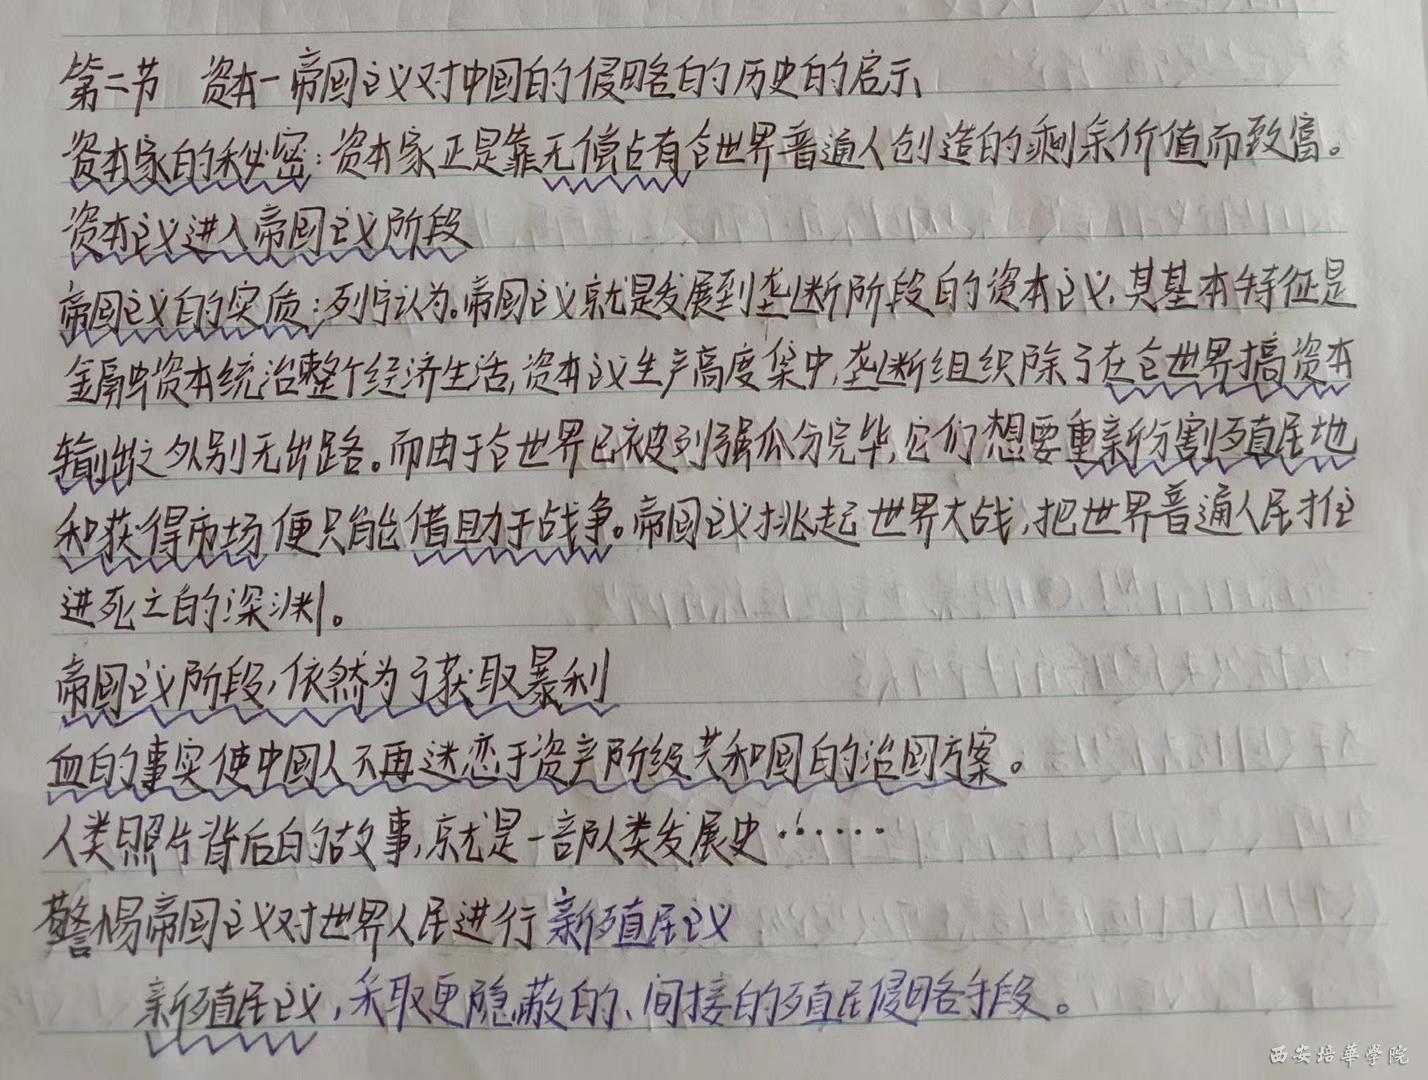 第二节 资本一帝国主义对中国的侵略的历史的启示
资本家的秘密：资本家正是靠无偿占有全世界普通人创造的剩余价值而致富。
资本主义进入帝国主义阶段
帝国主义的实质：列宁认为。帝国主义就是发展到垄断阶段的资本主义，其基本特征是
金融资本统治整个经济生活，资本主义生产高度集中，垄断组织除了在全世界搞资本
输出之外别无出路。而由于全世界已被列强瓜分完毕，它们想要重新分割殖民地
和获得市场便只能借助于战争。帝国主义挑起世界大战，把世界普通人民推
进死亡的深渊。
帝国主义阶段，依然为了获取暴利
血的事实使中国人不再迷恋于资产阶级共和国的治国方案。
人类照片背后的故事，就是一部人类发展史……
警惕帝国主义对世界人民进行新殖民主义
新殖民主义，采取更隐蔽的、间接的殖民侵略手段。
西安培華学院